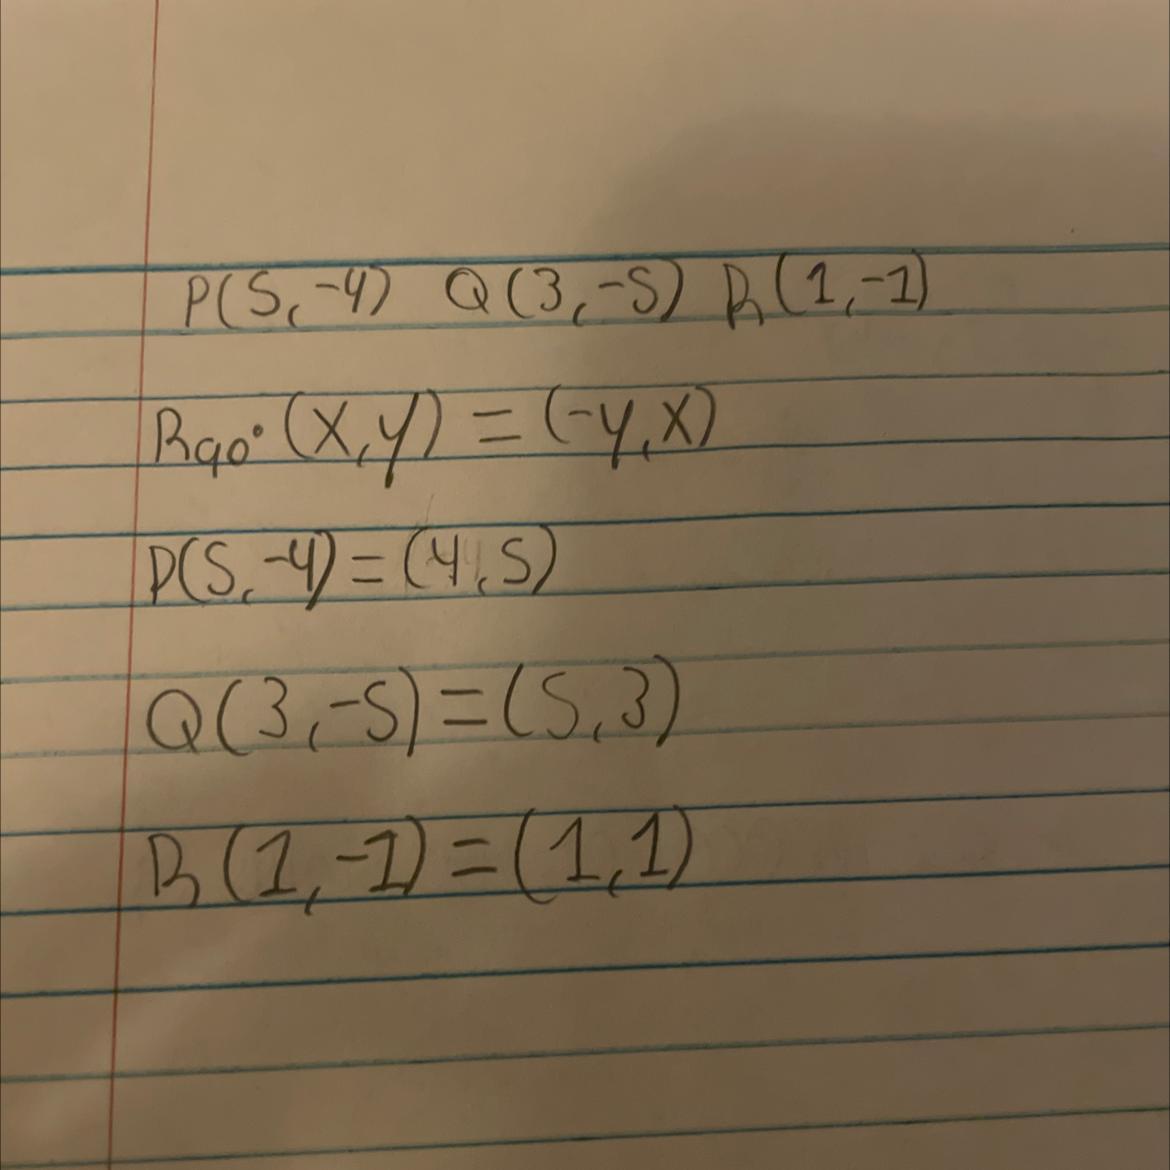 P(5,-4) Q(3,-5) R(1,-1)
R90°(x,y)=(-y,x)
P(5,-4)=(4,5)
Q(3,-5)=(5,3)
R(1,-1)=(1,1)